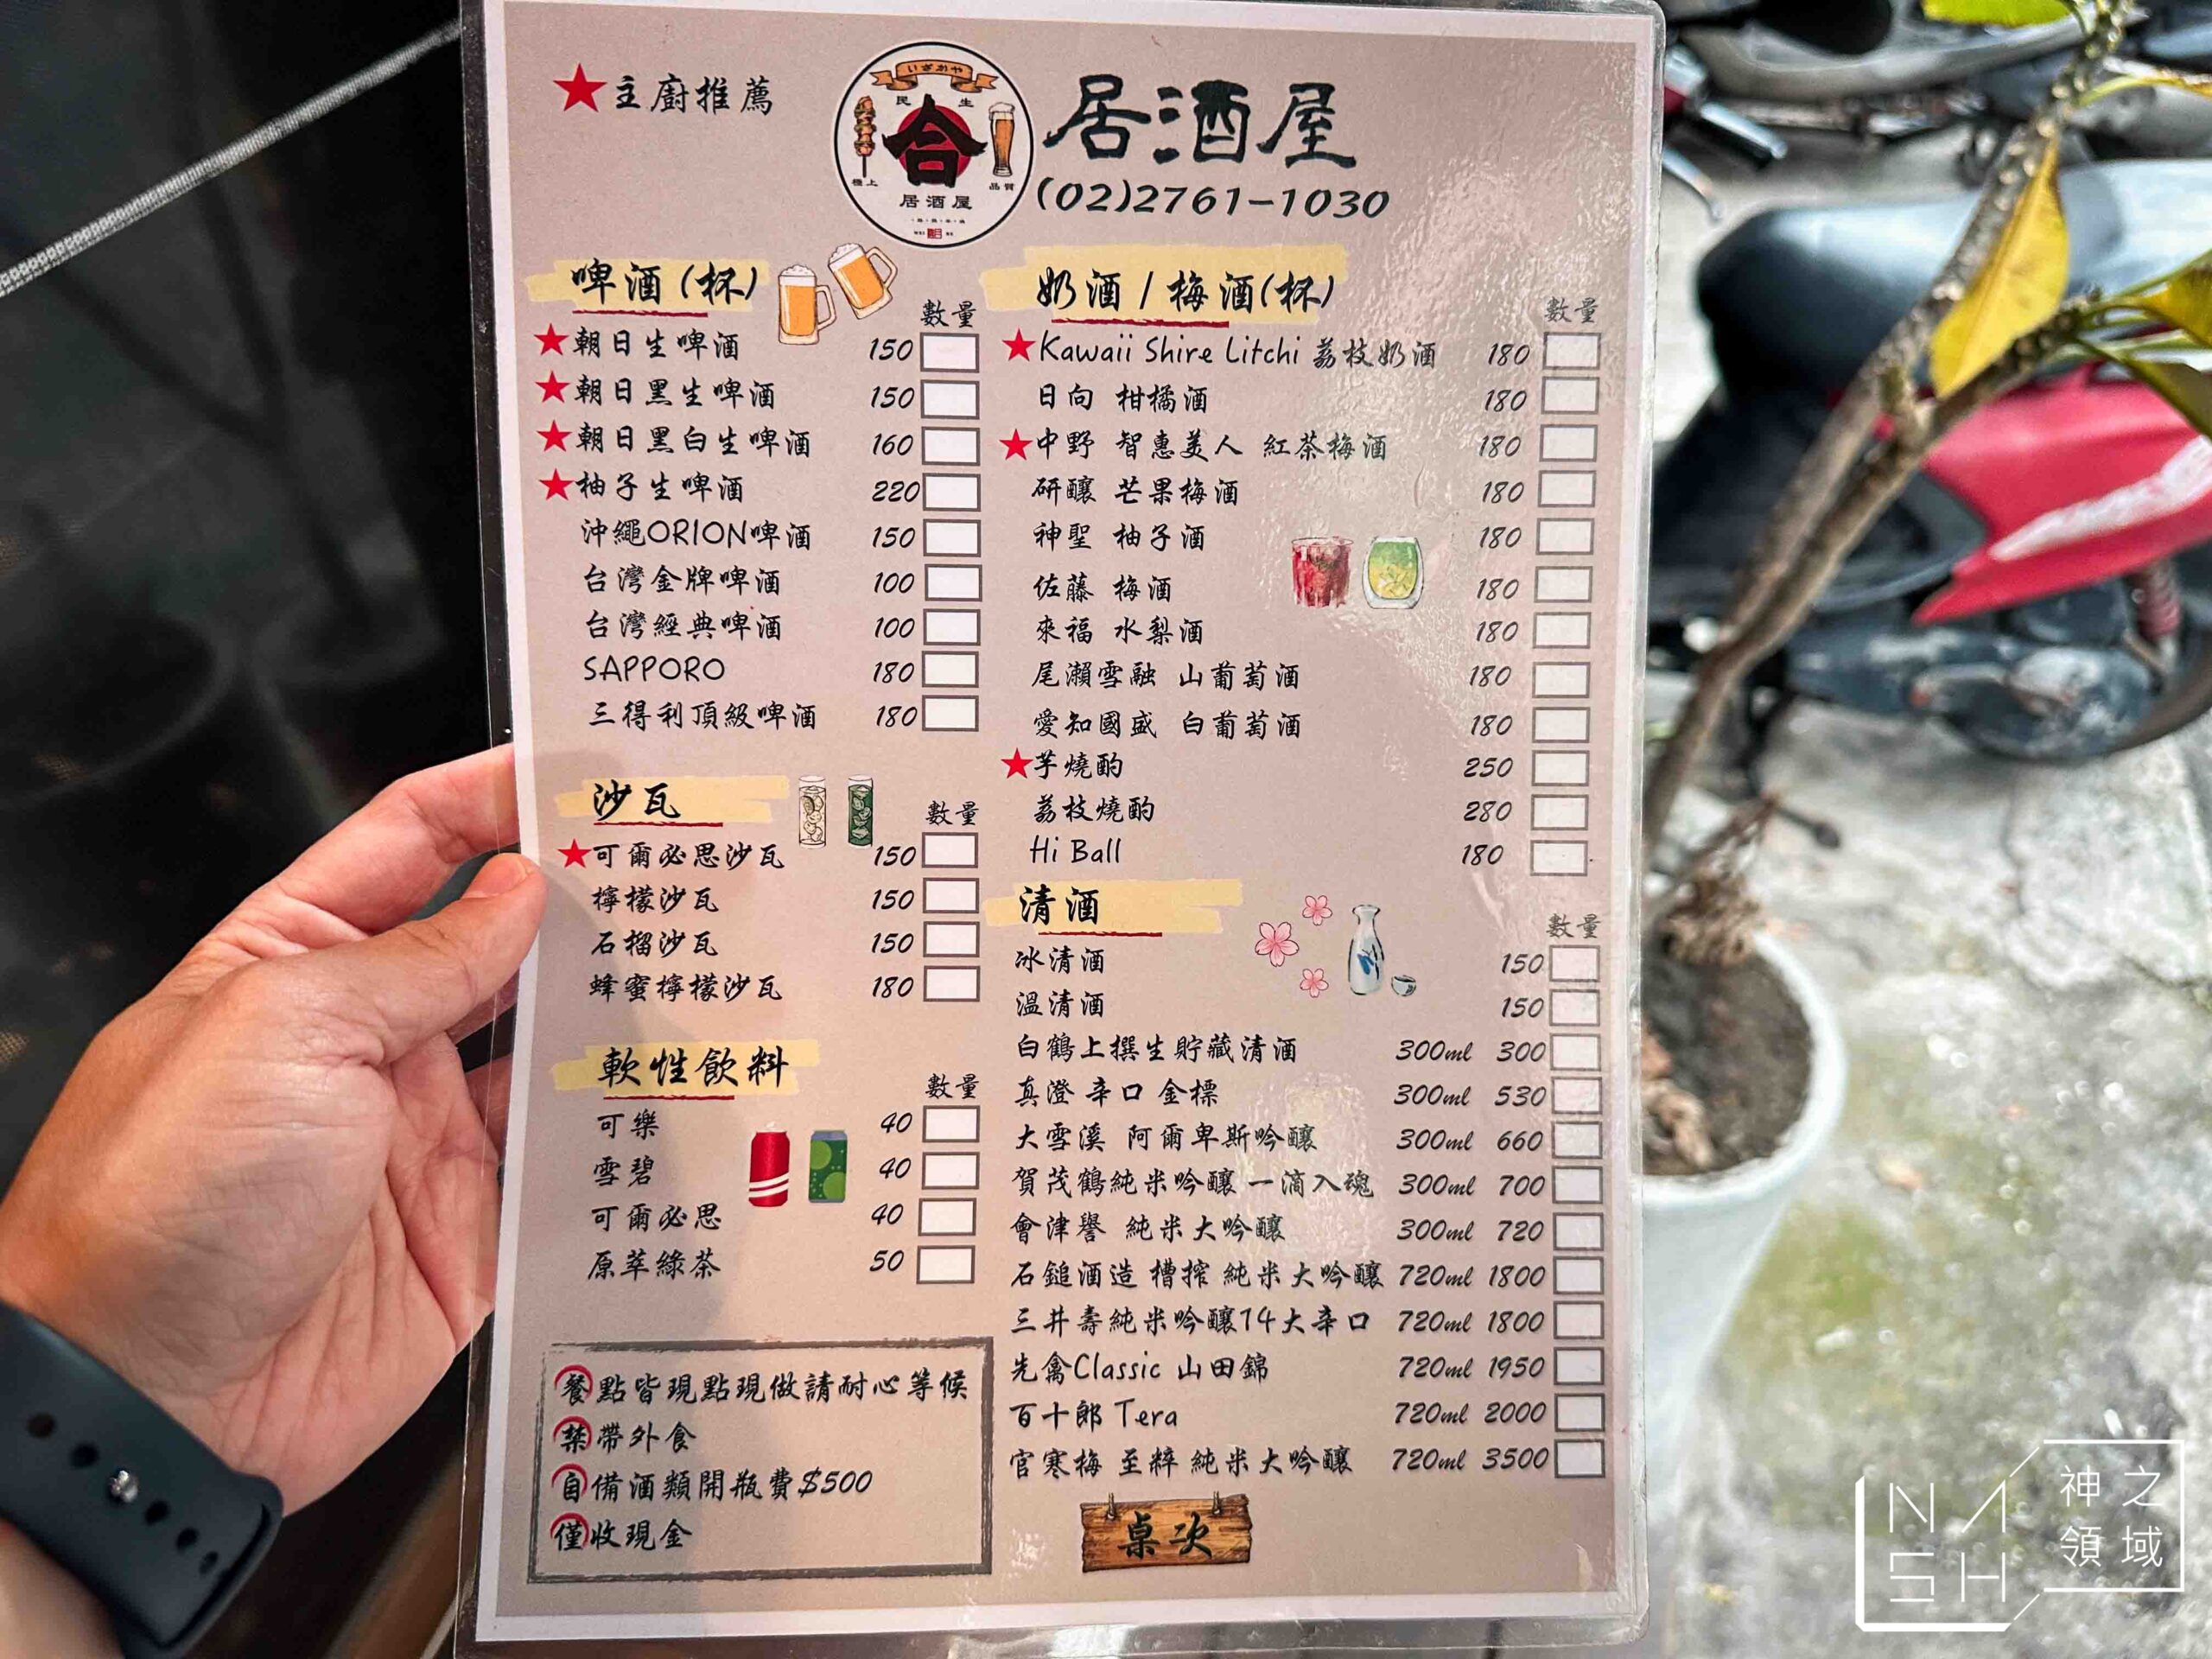 ★主廚推薦
いざかや
民 生
合
極上 品質
居酒屋
居酒屋
(02)2761-1030
啤酒(杯)
數量
★朝日生啤酒 150
★朝日黑生啤酒 150
★朝日黑白生啤酒 160
★柚子生啤酒 220
沖繩ORION啤酒 150
台灣金牌啤酒 100
台灣經典啤酒 100
SAPPORO 180
三得利頂級啤酒 180
沙瓦
數量
★可爾必思沙瓦 150
檸檬沙瓦 150
石榴沙瓦 150
蜂蜜檸檬沙瓦 180
軟性飲料
數量
可樂 40
雪碧 40
可爾必思 40
原萃綠茶 50
餐點皆現點現做請耐心等候
禁帶外食
自備酒類開瓶費$500
僅收現金
奶酒/梅酒(杯)
數量
★Kawaii Shire Litchi 荔枝奶酒 180
日向 柑橘酒 180
★中野 智惠美人 紅茶梅酒 180
研釀 芒果梅酒 180
神聖 柚子酒 180
佐藤 梅酒 180
來福 水梨酒 180
尾瀨雪融 山葡萄酒 180
愛知國盛 白葡萄酒 180
★芋燒酌 250
荔枝燒酌 280
Hi Ball 180
清酒
數量
冰清酒 150
溫清酒 150
白鶴上撰生貯藏清酒 300ml 300
真澄 辛口 金標 300ml 530
大雪溪 阿爾卑斯吟釀 300ml 660
賀茂鶴純米吟釀 一滴入魂 300ml 700
會津譽 純米大吟釀 300ml 720
石鎚酒造 槽搾 純米大吟釀 720ml 1800
三井壽純米吟釀14大辛口 720ml 1800
先禽Classic 山田錦 720ml 1950
百十郎 Tera 720ml 2000
官寒梅 至粹 純米大吟釀 720ml 3500
桌次
NASH
神之領域